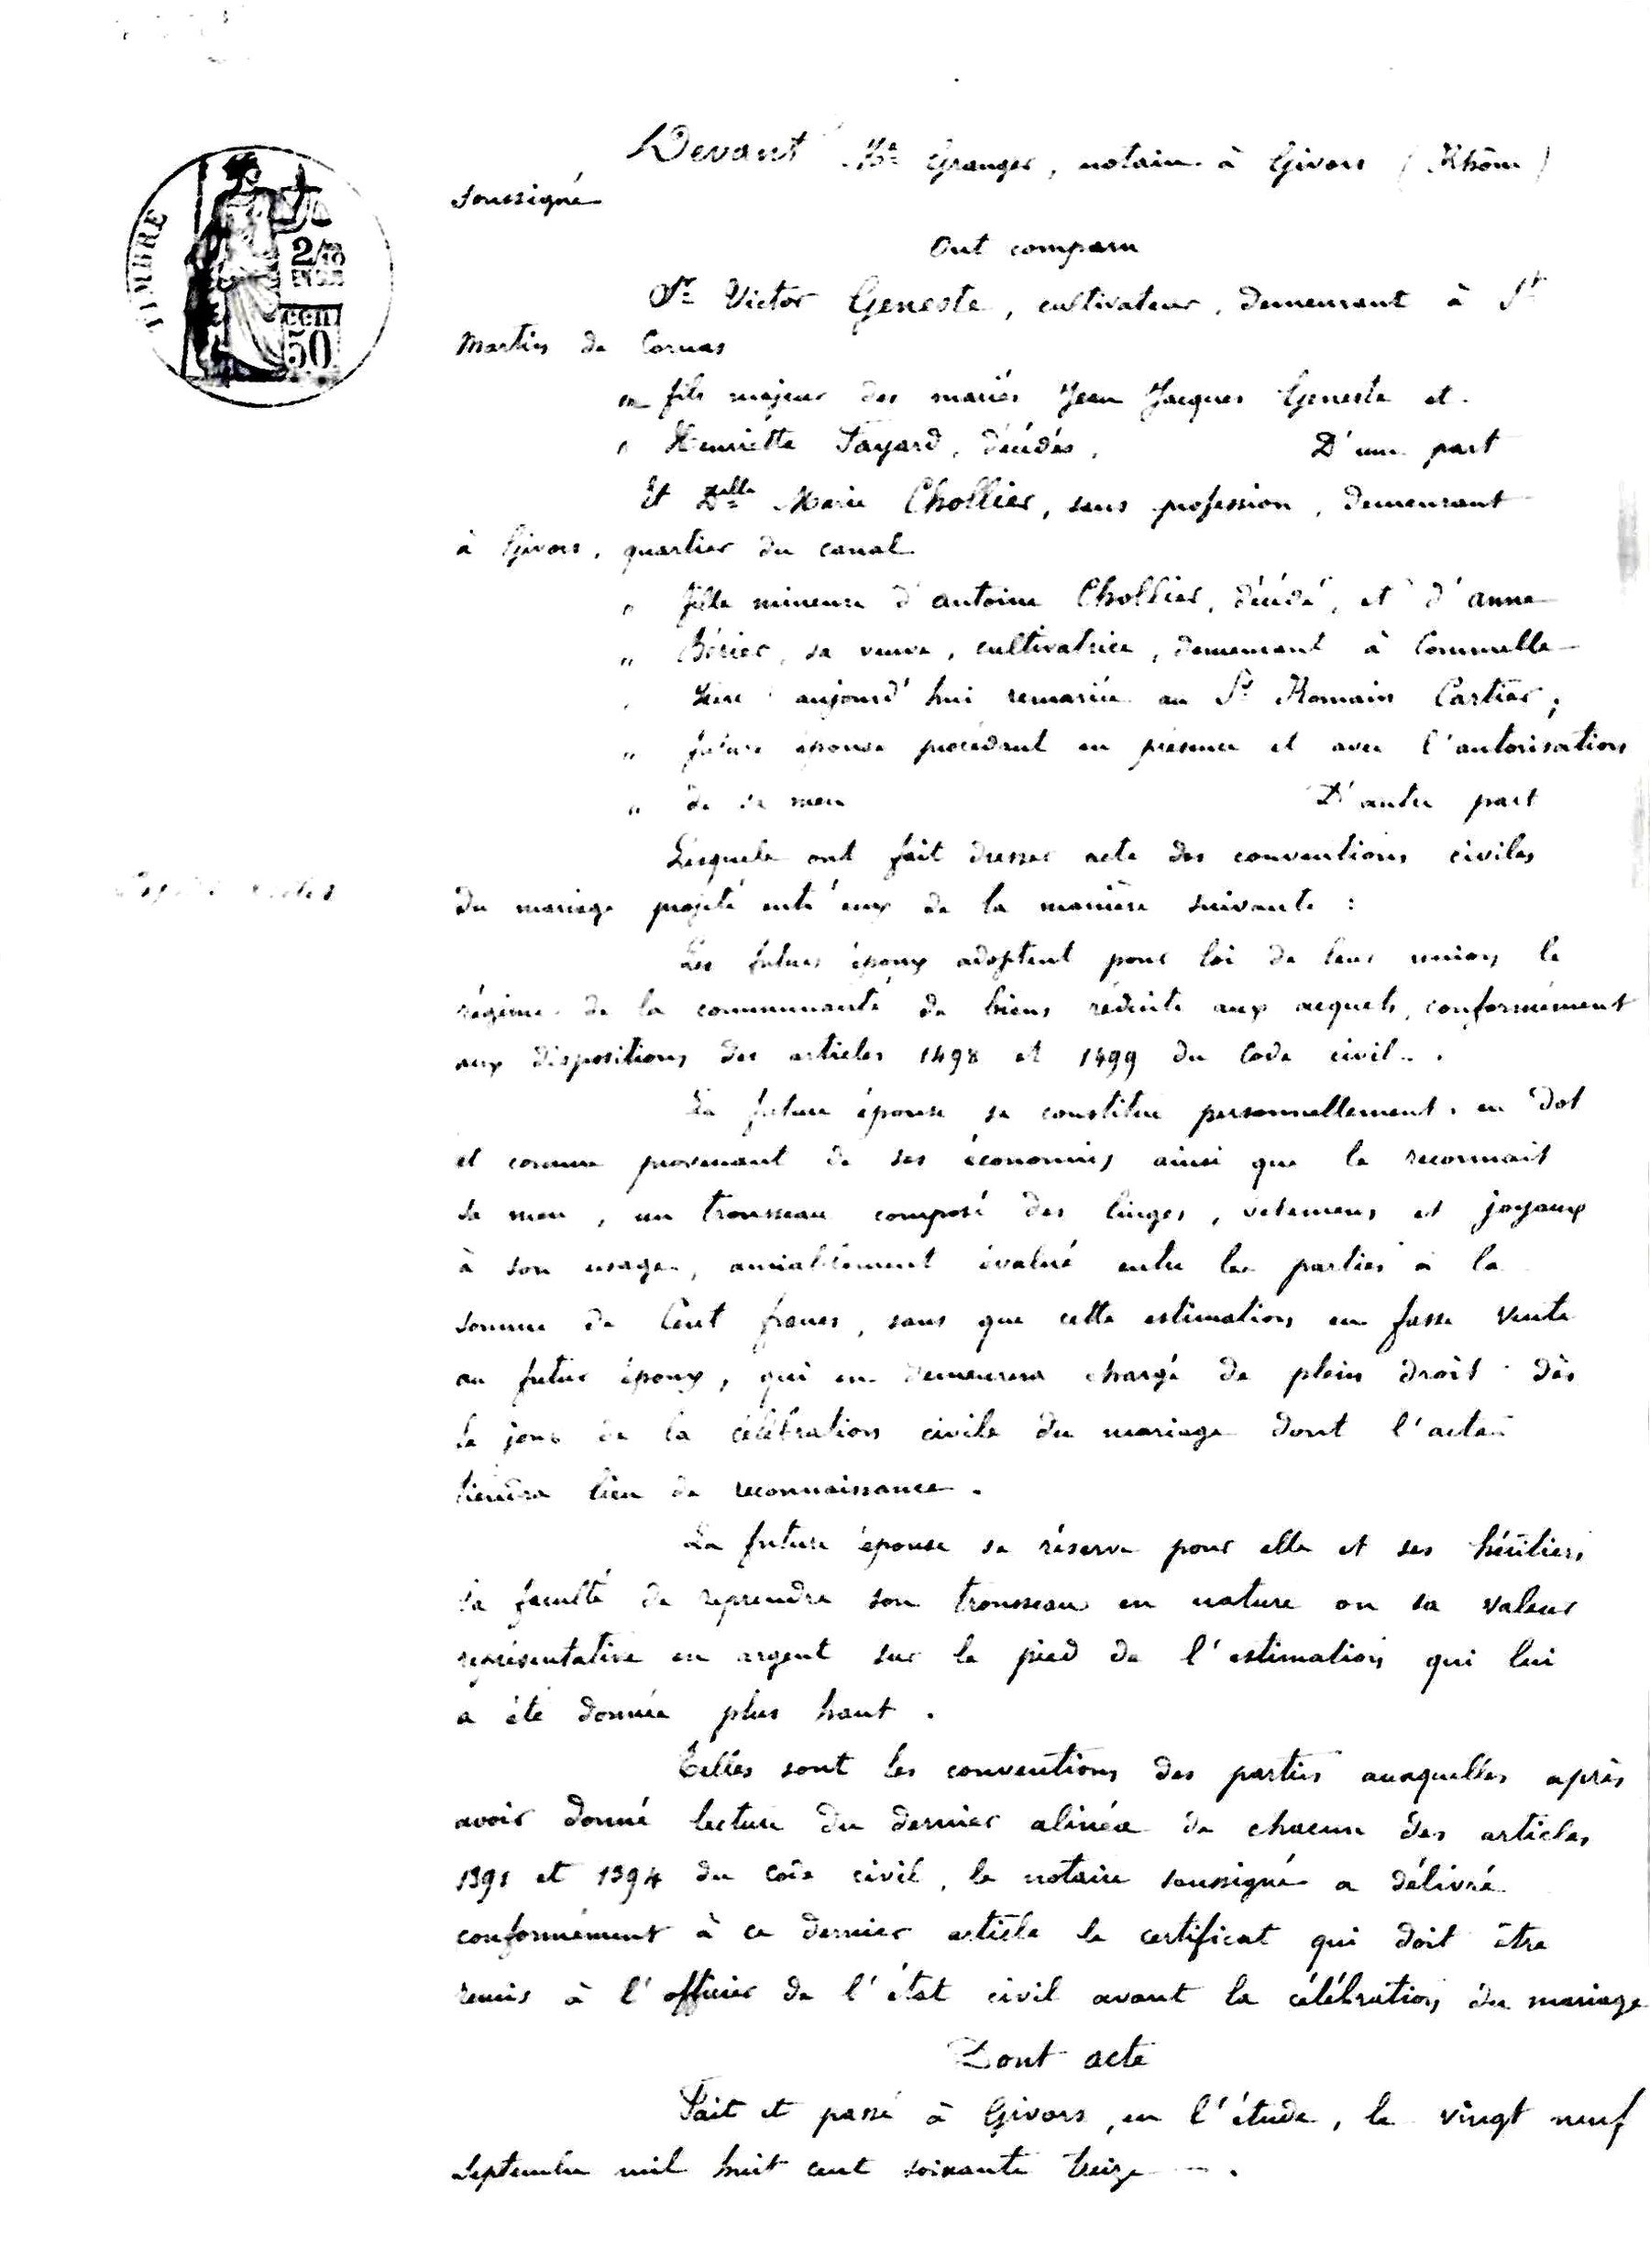 Devant Me Granger, notaire à Givors (Rhône)
soussigné
Ont comparu
TIMBRE
2/10
EN SUS
CEN
50
Sr Victor Geneste, cultivateur, demeurant à St
Martin de Cornas
fils majeur des mariés Jean Jacques Geneste et
" Henriette Fayard, décédés, D'une part
Et Delle Marie Chollier, sans profession, demeurant
à Givors, quartier du canal
" fille mineure d'antoine Chollier, décédé, et d'anne
" sa veuve, cultivatrice, demeurant à Commelle
aujourd'hui remariée au Sr Romain Cartier,
" future épouse procédant en présence et avec l'autorisation
" de sa mère D'autre part
Lesquels ont fait dresser acte des conventions civiles
du mariage projeté entr'eux de la manière suivante :
Les futurs époux adoptent pour loi de leur union le
régime de la communauté de biens réduite aux acquets, conformément
aux dispositions des articles 1498 et 1499 du Code civil.
La future épouse se constitue personnellement en dot
et comme provenant de ses économies ainsi que le reconnait
sa mère, un trousseau composé des linges, vêtemens et joyaux
à son usage, amiablement évalué entre les parties à la
somme de Cent francs, sans que cette estimation en fasse vente
au futur époux, qui en demeurera chargé de plein droit dès
le jour de la célébration civile du mariage dont l'acte
tiendra lieu de reconnaissance.
La future épouse se réserve pour elle et ses héritiers
la faculté de reprendre son trousseau en nature ou sa valeur
représentative en argent sur le pied de l'estimation qui lui
a été donnée plus haut.
Telles sont les conventions des parties auxquelles après
avoir donné lecture du dernier alinéa de chacun des articles
1391 et 1394 du code civil, le notaire soussigné a délivré
conformément à ce dernier article le certificat qui doit être
remis à l'officier de l'état civil avant la célébration du mariage
Dont acte
Fait et passé à Givors, en l'étude, le vingt neuf
septembre mil huit cent soixante treize.